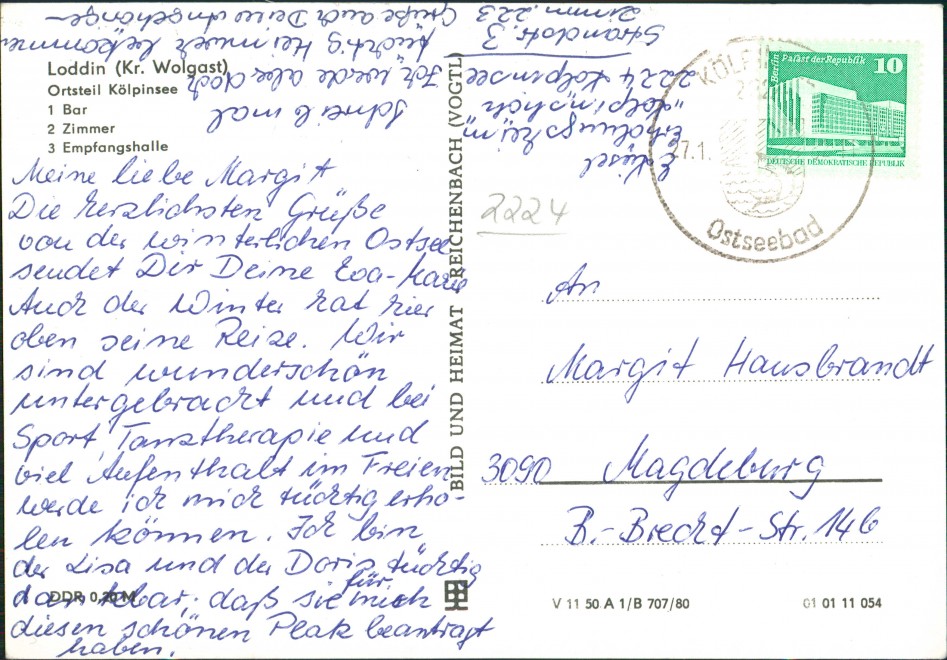 Loddin (Kr. Wolgast)
Ortsteil Kölpinsee
1 Bar
2 Zimmer
3 Empfangshalle
Meine liebe Margitt
Die herzlichsten Grüße
von der winterlichen Ostsee
sendet Dir Deine Eva-Marie
Auch der Winter hat hier
oben seine Reize. Wir
sind wunderschön
untergebracht und bei
Sport, Tanztherapie und
viel Aufenthalt im Freien
werde ich mich tüchtig erho-
len können. Ich bin
der Lisa und der Doris tüchtig
dankbar, daß sie für mich
diesen schönen Platz beantragt
haben.
Schreib mal
Ich werde aber doch
tüchtig Heimweh bekommen
Grüße auch Deine Angehörigen
Erholungsheim
"Kölpinshöh"
2224 Kölpinsee
Strandstr. 3
Zimm. 223
DDR 0,20 M
BILD UND HEIMAT REICHENBACH (VOGTL
Berlin Palast der Republik 10
DEUTSCHE DEMOKRATISCHE REPUBLIK
KÖLPIN
7.1.
Ostseebad
2224
An
Margit Hausbrandt
3090 Magdeburg
B.-Brecht-Str. 14b
V 11 50 A 1/B 707/80
01 01 11 054